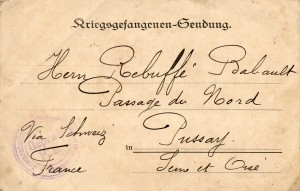 Kriegsgefangenen-Sendung.
Herrn Rebuffé Balault
Passage du Nord
Via Schweiz
in Pussay
France
Seine et Oise